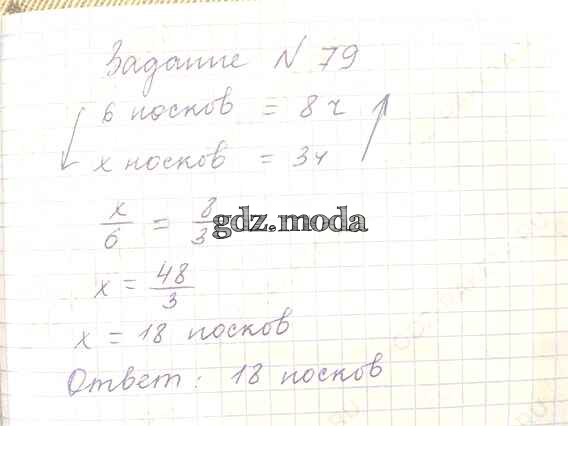 Задание N 79
6 носков = 8 ч
x носков = 3 ч
x/6 = 8/3
gdz.moda
x = 48/3
x = 18 носков
Ответ: 18 носков